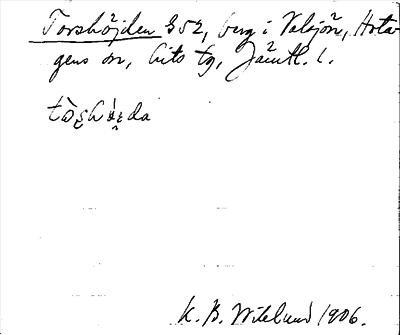 Torshöjden 852, berg i Valsjön, Hota-
gens sn, Lits tg, Jämtl. l.
K. B. Wiklund 1906.